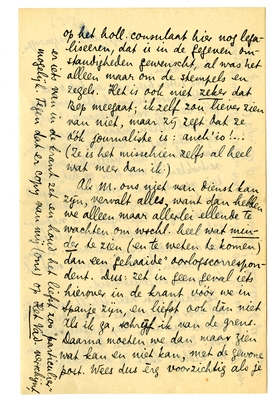 op het holl. consulaat hier nog lega-
liseeren, dat is in de gegeven om-
standigheden gewenscht, al was het
alleen maar om de stempels en
zegels. Het is ook niet zeker dat
Bep meegaat; ikzelf zou liever zien
van niet, maar zij zegt dat ze
óók journaliste is: anch'io!...
(Ze is het misschien zelfs al heel
wat meer dan ik.)
Als M. ons niet van dienst kan
zijn, vervalt alles, want dan hebben
we alleen maar allerlei ellende te
wachten om wschl. heel wat min-
der te zien (en te weten te komen)
dan een gehaaide oorlogscorrespon-
dent. Dus: zet in geen geval iets
hierover in de krant vóór we in
Spanje zijn, en liefst ook dàn niet.
Als ik ga, schrijf ik van de grens.
Daarna moeten we dan maar zien
wat kan en niet kan, met de gewone
post. Wees dus erg voorzichtig als je
er iets van in de krant zet en houd het liefst zoo "particulier"
mogelijk. Tegen dat er copy van mij (ons) op Het Vad. verschijnt